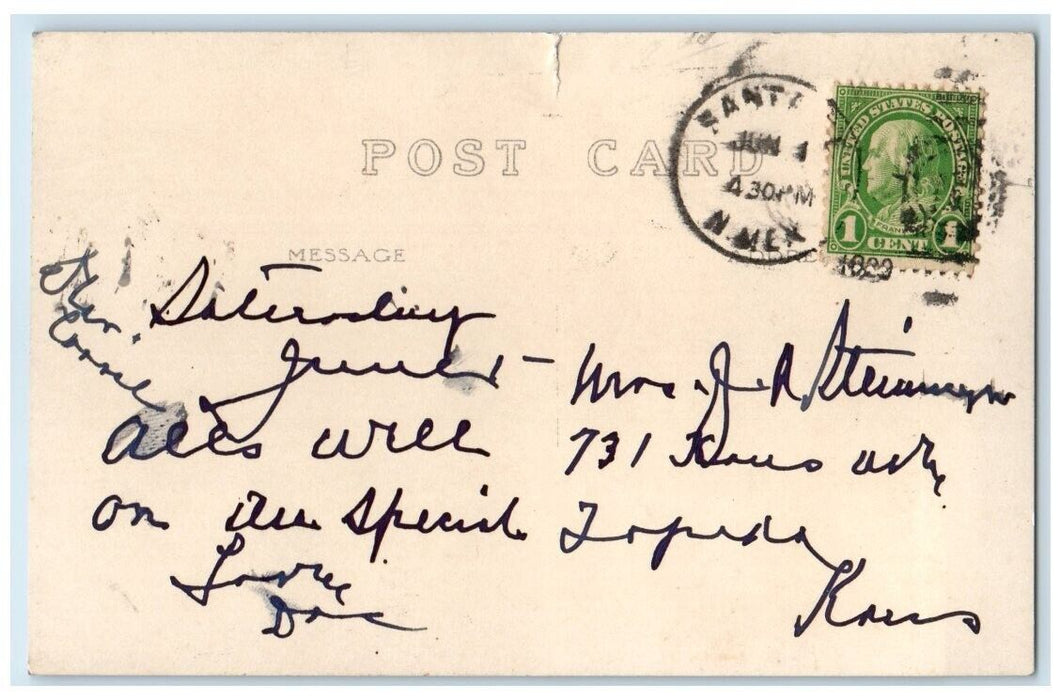 POST CARD
SANTA
JUN 1
4 30 PM
N. MEX
UNITED STATES POSTAGE
FRANKLIN
1 CENT 1
MESSAGE
Saturday
June 1 -
All's well
on the Special
Love
Doc
Mrs. J. R.
731 Kans Ave,
Topeka,
Kans